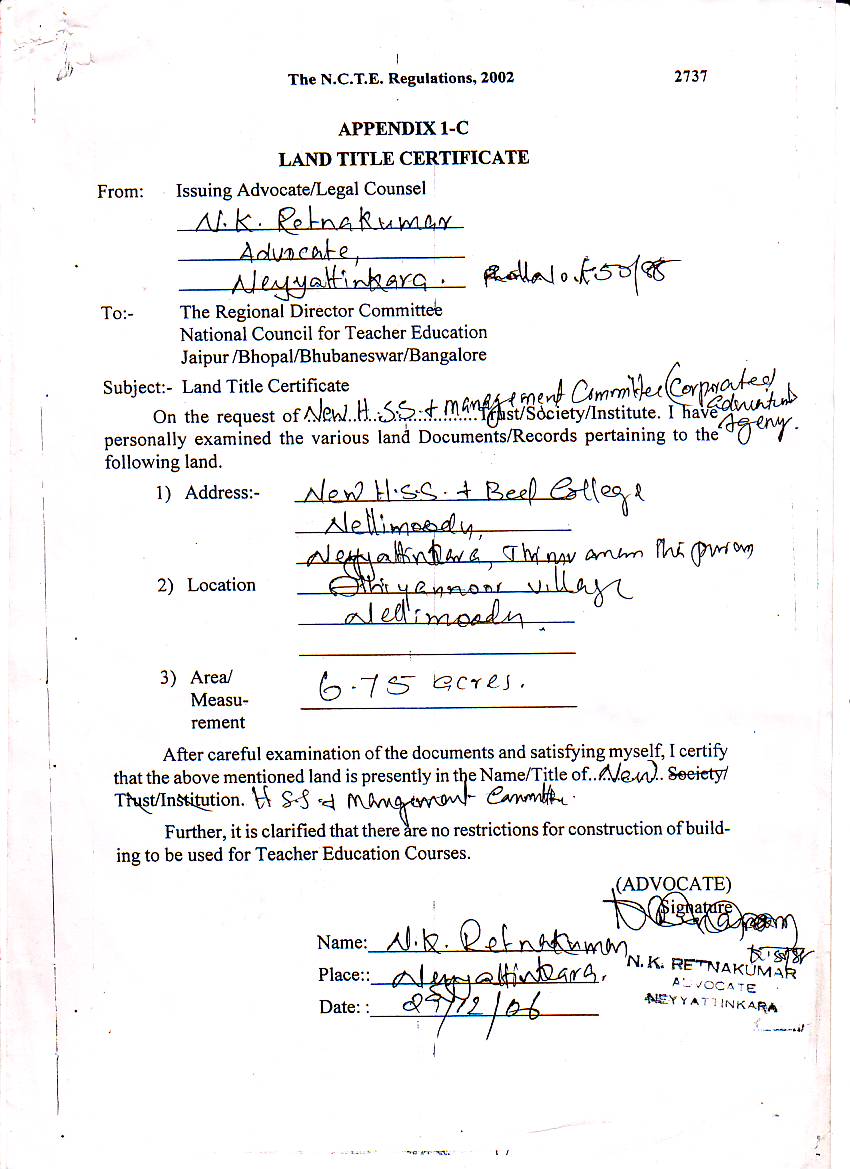 The N.C.T.E. Regulations, 2002 2737
APPENDIX 1-C
LAND TITLE CERTIFICATE
From: Issuing Advocate/Legal Counsel
N.K. Retnakumar
Advocate,
Neyyattinkara.
To:- The Regional Director Committee
National Council for Teacher Education
Jaipur /Bhopal/Bhubaneswar/Bangalore
Subject:- Land Title Certificate
On the request of New H.S.S. & Management Committee (Corporated Agency. Trust/Society/Institute. I have
personally examined the various land Documents/Records pertaining to the
following land.
1) Address:- New H.S.S. & Bed College
Nellimoody,
Neyyattinkara,
2) Location Athiyannoor village
Nellimoody
3) Area/ 6.75 acres.
Measu-
rement
After careful examination of the documents and satisfying myself, I certify
that the above mentioned land is presently in the Name/Title of..New.. Society/
Trust/Institution. H S.S & Mangement Committe.
Further, it is clarified that there are no restrictions for construction of build-
ing to be used for Teacher Education Courses.
(ADVOCATE)
Signature
Name: N.K. Retnakumar
N. K. RETNAKUMAR
Place:: Neyyattinkara.
ADVOCATE
NEYYATTINKARA
Date: : 29/12/06